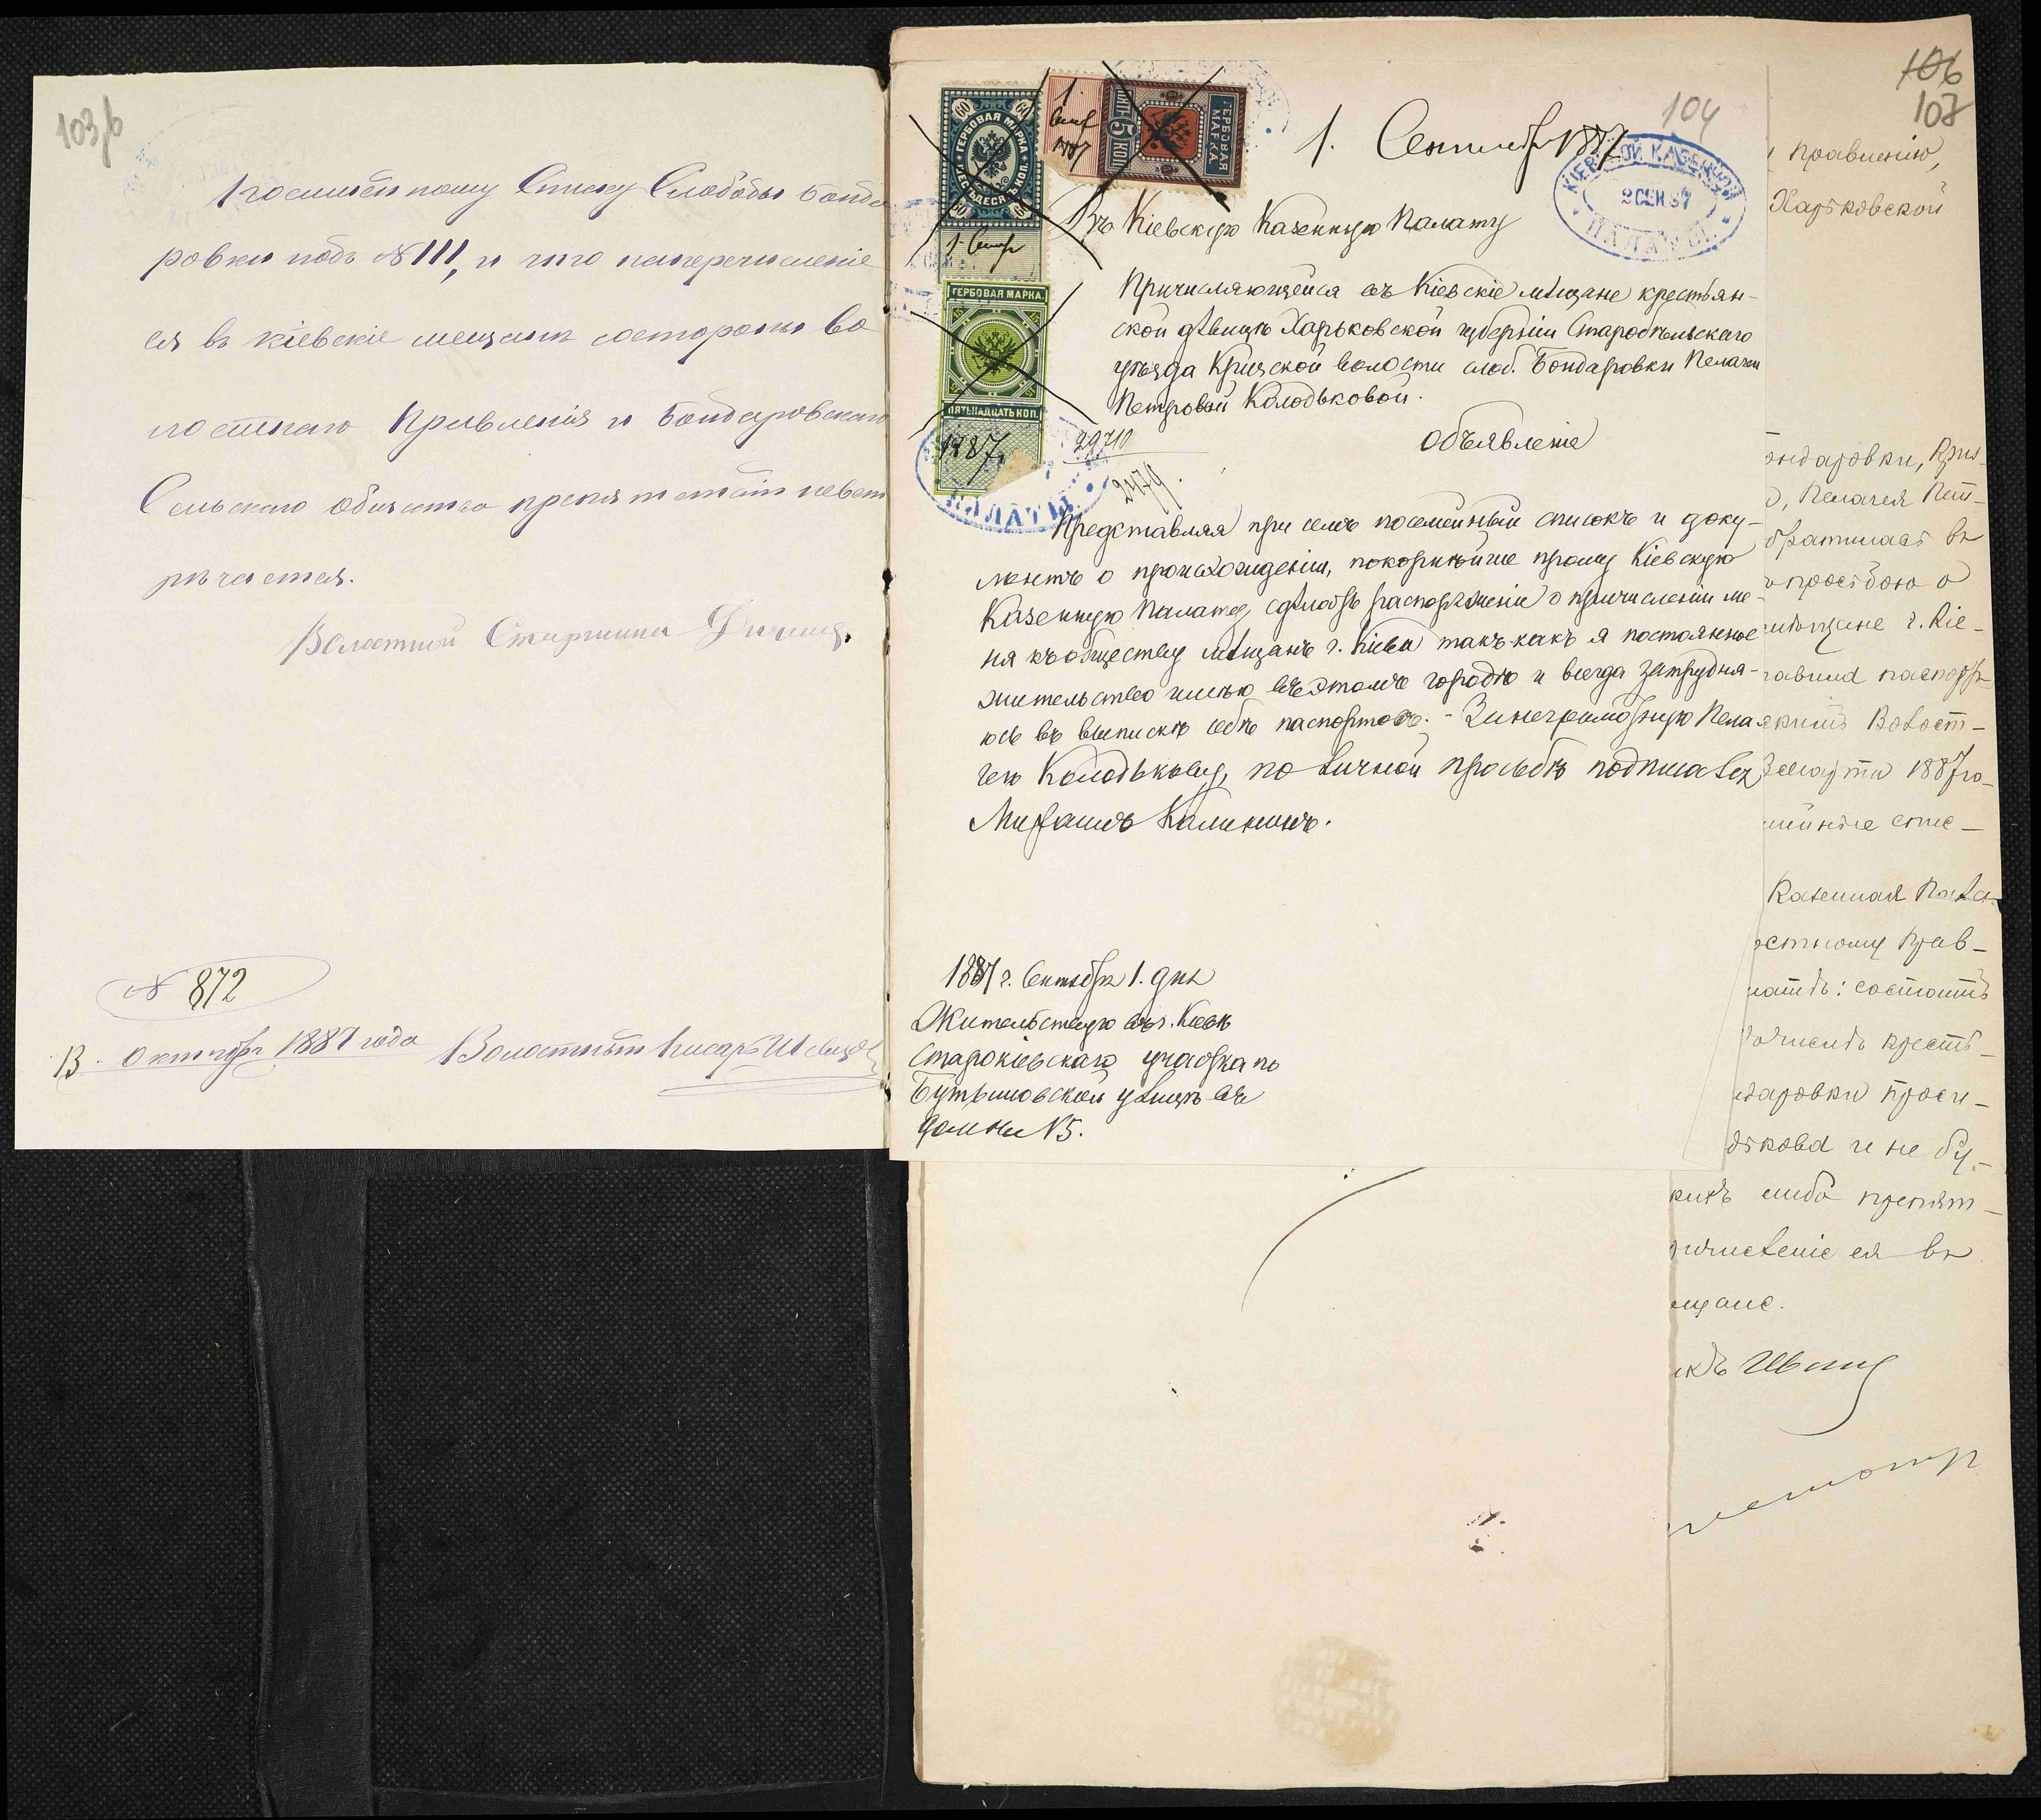 103об
посемейному Списку Слободы Бонда
ровки подъ № 111, и что паперечисленіе
ея въ кіевскіе мещане состороны Во
лостнаго Правленія и Бондаровскаго
Сельскаго Общества препятствій невст
рѣчается.
Волостной Старшина
№ 872
13. октября 1887 года Волостный Писарь
104
1. Сентября 1887
КІЕВСКОЙ КАЗЕННОЙ
2 СЕН 87
ПАЛАТЫ
ГЕРБОВАЯ МАРКА
60
ШЕСТЬДЕСЯТЪ КОП.
1. Сент
1. Сент 1887
ГЕРБОВАЯ МАРКА
ПЯТЬ 5 КОП
ГЕРБОВАЯ МАРКА.
ПЯТЬНАДЦАТЬ КОП.
1887.
ПАЛАТЫ
Въ Кіевскую Казенную Палату
Причисляющейся въ Кіевскіе мѣщане крестьян-
ской дѣвицѣ Харьковской губерніи Старобѣльскаго
уѣзда Крицской волости слоб. Бондаровки Пелагеи
Петровой Колодьковой.
29710
2479.
Объявленіе
Представляя при семъ посемейный списокъ и доку-
ментъ о происхожденіи, покорнѣйше прошу Кіевскую
Казенную Палату сдѣлать распоряженіе о причисленіи ме-
ня къ обществу мѣщанъ г. Кіева такъ какъ я постоянное
жительство имѣю въ этомъ городѣ и всегда затрудня-
юсь въ выпискѣ себѣ паспортовъ. - За неграмотную Пела
гею Колодькову, по личной просьбѣ подписался
Калининъ.
1887 г. Сентября 1. дня
Жительствую въ г. Кіевѣ
Старокіевскаго участка по
Бутышовской улицѣ въ
домѣ № 5.
106
107
Правленію,
Харьковской
ондаровки, Криц-
Пелагея Пет-
братилась въ
просьбою о
мѣщане г. Кіе-
тавила паспортъ
Волост-
марта 1887 го-
мейные спис-
Казенная Пала-
остному Прав-
состоитъ
крестъ-
ндаровки проси-
дькова и не бу-
кихъ либо препят-
ричисленіе ея въ
щане.